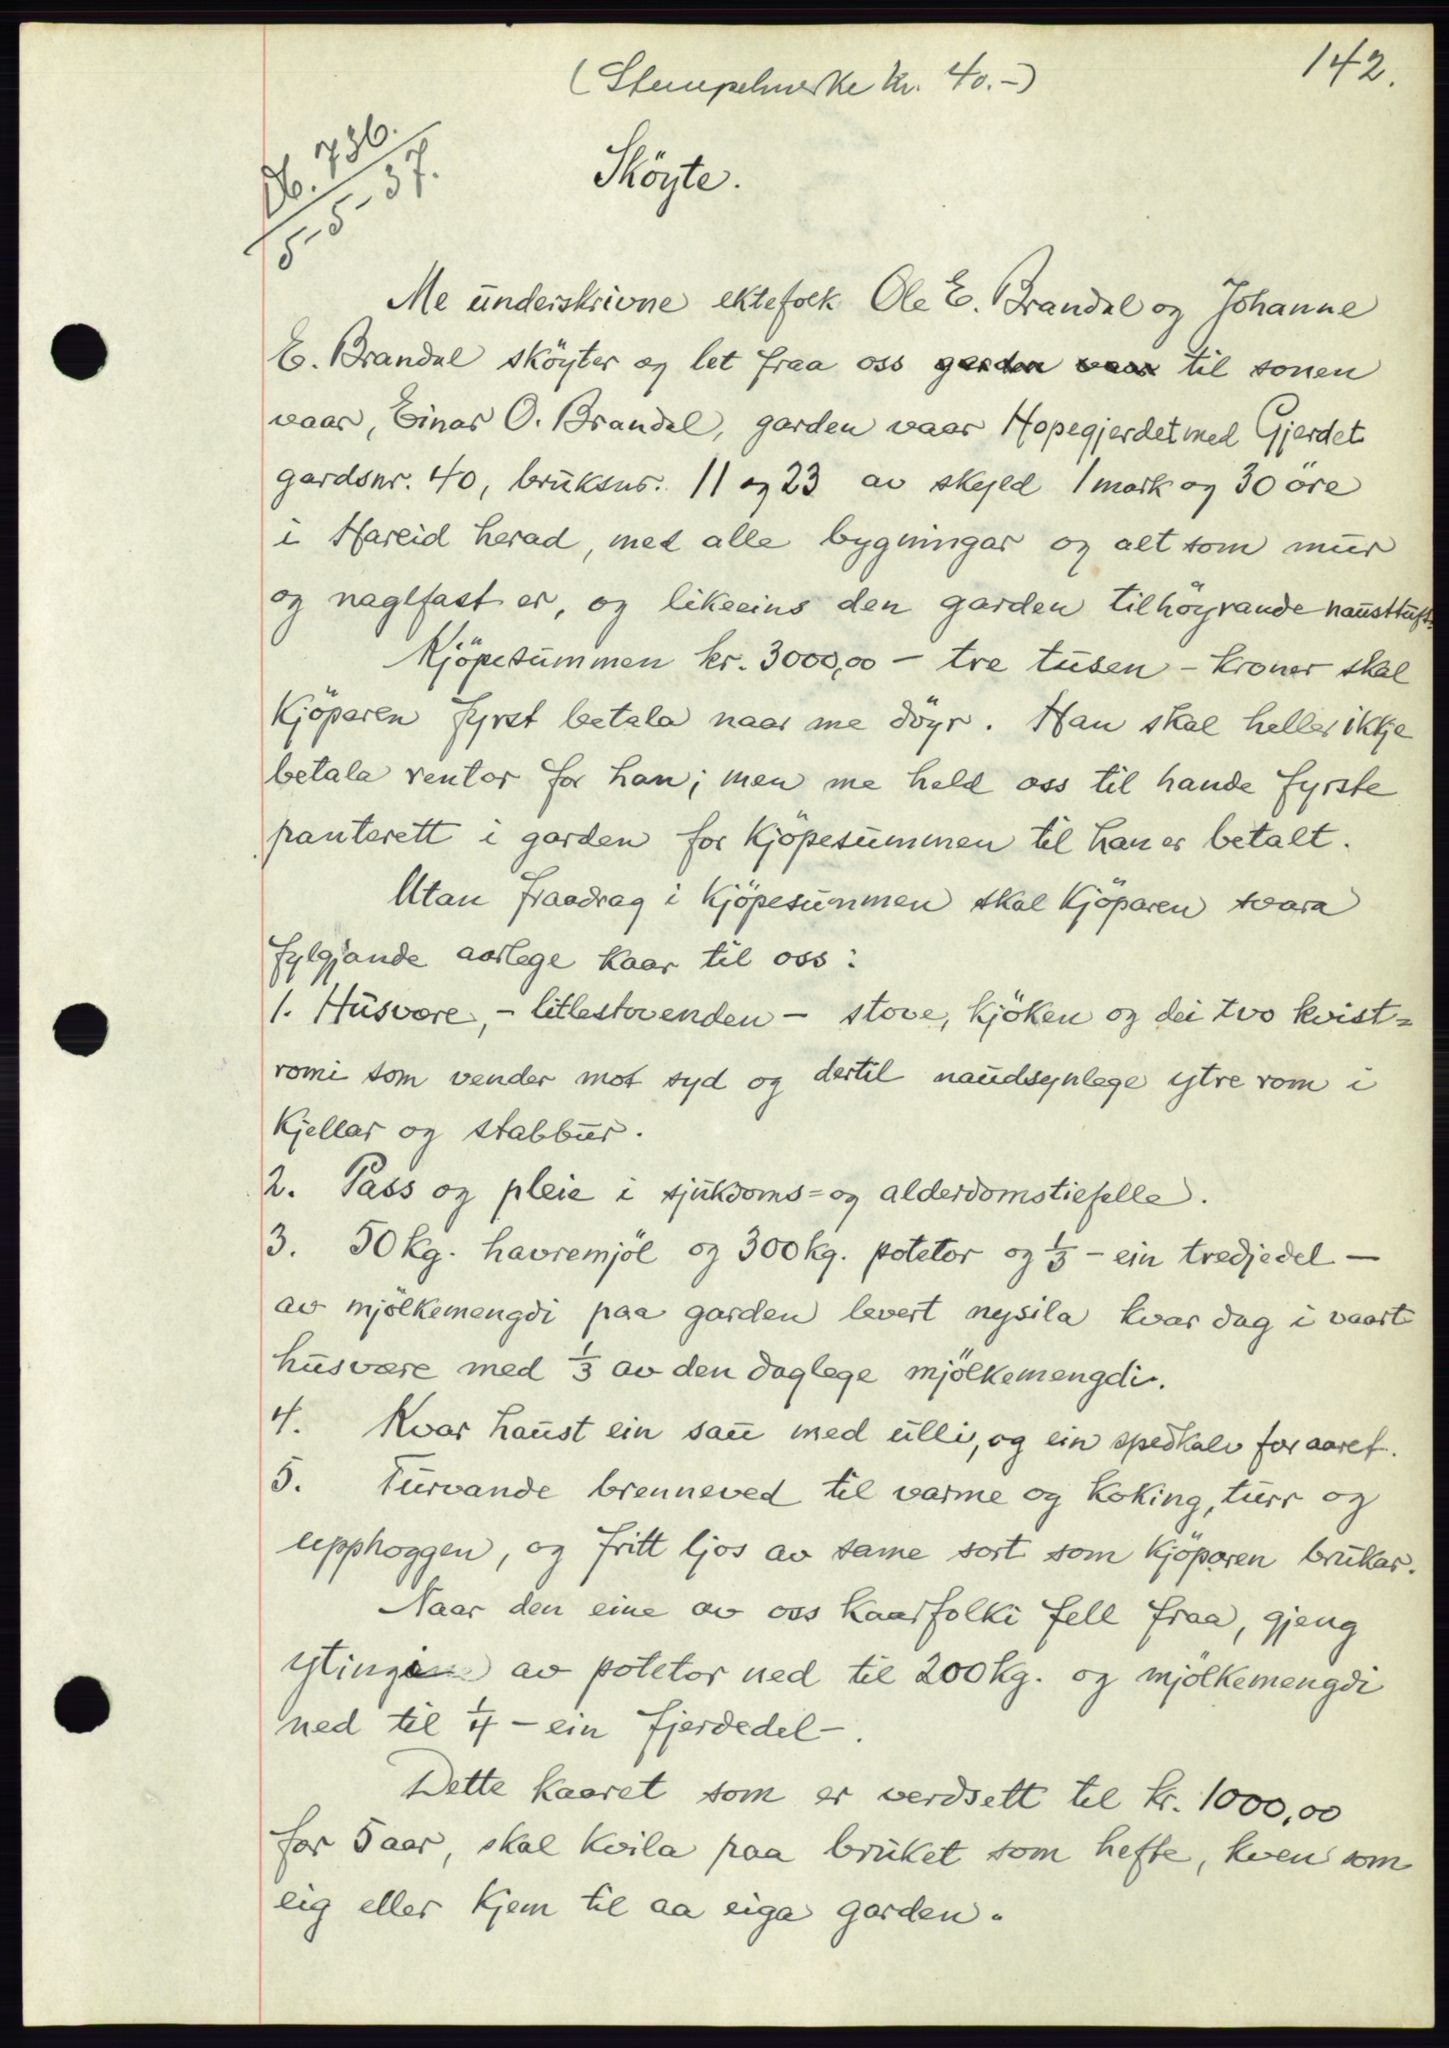 142.
(Stempelmerke kr. 40.-)
Db. 736.
5-5-37.
Sköyte.
Me underskrivne ektefolk Ole E. Brandal og Johanne
E. Brandal sköyter og let fraa oss garden vaar til sonen
vaar, Einar O. Brandal, garden vaar Hopegjerdet med Gjerdet
gardsnr. 40, bruksnr. 11 og 23 av skyld 1 mark og 30 öre
i Hareid herad, med alle bygningar og alt som mur
og naglfast er, og likeeins den garden tilhöyrande nausttuft.
Kjöpesummen kr. 3000,00 - tre tusen - kroner skal
kjöparen fyrst betala naar me döyr. Han skal heller ikkje
betala rentor for han; men me held oss til hande fyrste
panterett i garden for kjöpesummen til han er betalt.
Utan fraadrag i kjöpesummen skal kjöparen svara
fylgjande aarlege kaar til oss:
1. Husvære, - litlestovenden - stove, kjöken og dei tvo kvist=
romi som vender mot syd og dertil naudsynlege ytre rom i
kjellar og stabbur.
2. Pass og pleie i sjukdoms= og alderdomstilfelle.
3. 50 kg. havremjöl og 300 kg. potetor og 1/3 - ein tredjedel -
av mjölkemengdi paa garden levert nysila kvar dag i vaart
husvære med 1/3 av den daglege mjölkemengdi.
4. Kvar haust ein sau med ulli, og ein spedkalv for aaret.
5. Turvande brenneved til varme og koking, turr og
upphoggen, og fritt ljos av same sort som kjöparen brukar.
Naar den eine av oss kaarfolki fell fraa, gjeng
ytingi av potetor ned til 200 kg. og mjölkemengdi
ned til 1/4 - ein fjerdedel -.
Dette kaaret som er verdsett til kr. 1000,00
for 5 aar, skal kvila paa bruket som hefte, kven som
eig eller kjem til aa eiga garden.